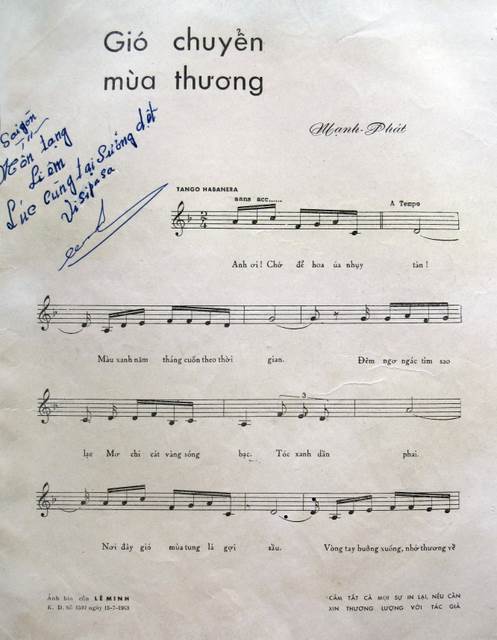 Gió chuyển
mùa thương
Mạnh-Phát
Saigon
Mến tặng
Li êm
Lúc cùng tại Xưởng dệt
Visipasa
TANGO HABANERA
sans acc......
A Tempo
2
4
Anh ơi! Chớ để hoa úa nhụy tàn!
Màu xanh năm tháng cuốn theo thời gian. Đêm ngơ ngác tìm sao
3
lạc Mơ chi cát vàng sông bạc. Tóc xanh dần phai.
Nơi đây gió mùa tung lá gợi sầu. Vòng tay buông xuống, nhớ thương về
Ảnh bìa của LÊ MINH
K. D. Số 1597 ngày 15-7-1963
CẤM TẤT CẢ MỌI SỰ IN LẠI, NẾU CẦN
XIN THƯƠNG LƯỢNG VỚI TÁC GIẢ